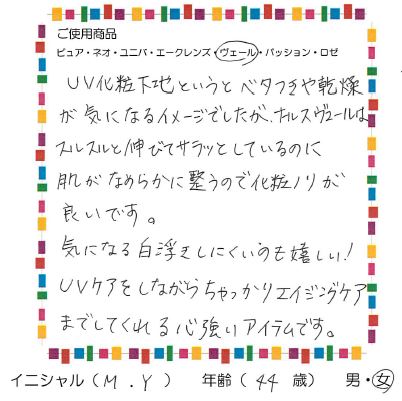 ご使用商品
ピュア・ネオ・ユニバ・エークレンズ・ヴェール・パッション・ロゼ
UV化粧下地というとベタつきや乾燥
が気になるイメージでしたが、ナルスヴェールは
スルスルと伸びてサラッとしているのに
肌がなめらかに整うので化粧ノリが
良いです。
気になる白浮きしにくいのも嬉しい!
UVケアをしながらちゃっかりエイジングケア
までしてくれる心強いアイテムです。
イニシャル(M.Y) 年齢(44 歳) 男・女